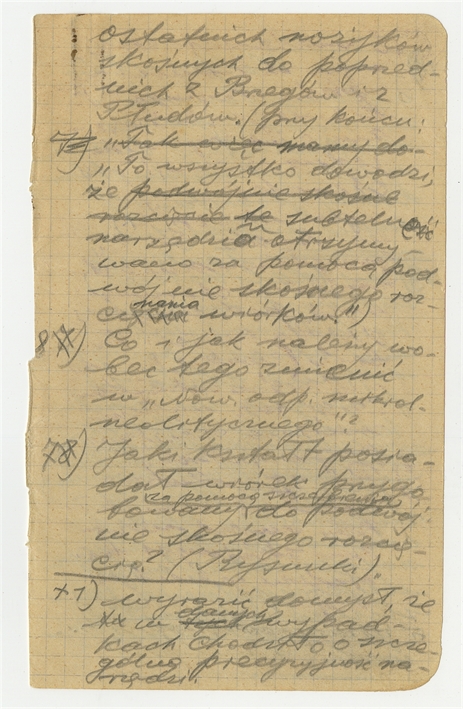 ostatnich nożyków
skośnych do poprzed-
nich z Bregów i z
Płudów. (przy końcu:
7) „Tak więc mamy do-
„To wszystko dowodzi,
że podwójnie skośne
rozcięcie te subtelność
narzędzia otrzymy-
wano za pomocą pod-
wójnie skośnego roz-
cinania wiórków.")
8) Co i jak należy wo-
bec tego zmienić
w „Now. odp. mikrol-
neolitycznego"?
78) Jaki kształt posia-
dał wiórek przygo
za pomocą
bowany do podwój-
nie skośnego rozcię-
cia? (Rysunki)
+1) wyrazić domysł, że
w danych wypad-
kach chodziło o szcze-
gólną precyzyjność na-
rzędzi.